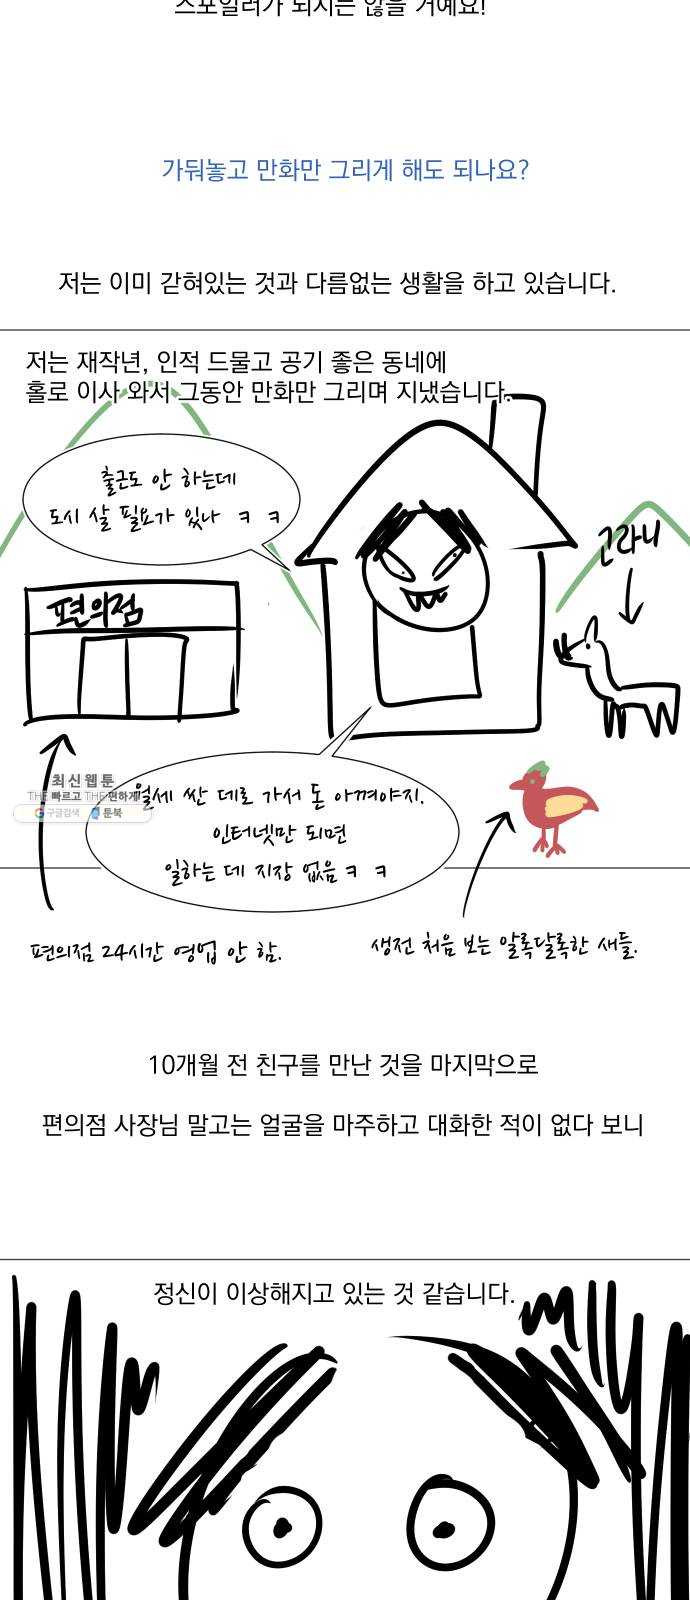 스포일러가 되지는 않을 거예요!
가둬놓고 만화만 그리게 해도 되나요?
저는 이미 갇혀있는 것과 다름없는 생활을 하고 있습니다.
저는 재작년, 인적 드물고 공기 좋은 동네에
홀로 이사 와서 그동안 만화만 그리며 지냈습니다.
출근도 안 하는데
도시 살 필요가 있나 ㅋ ㅋ
고라니
편의점
월세 싼 데로 가서 돈 아껴야지.
인터넷만 되면
일하는 데 지장 없음 ㅋ ㅋ
최신웹툰
THE빠르고 THE편하게
구글검색 툰북
편의점 24시간 영업 안 함.
생전 처음 보는 알록달록한 새들.
10개월 전 친구를 만난 것을 마지막으로
편의점 사장님 말고는 얼굴을 마주하고 대화한 적이 없다 보니
정신이 이상해지고 있는 것 같습니다.